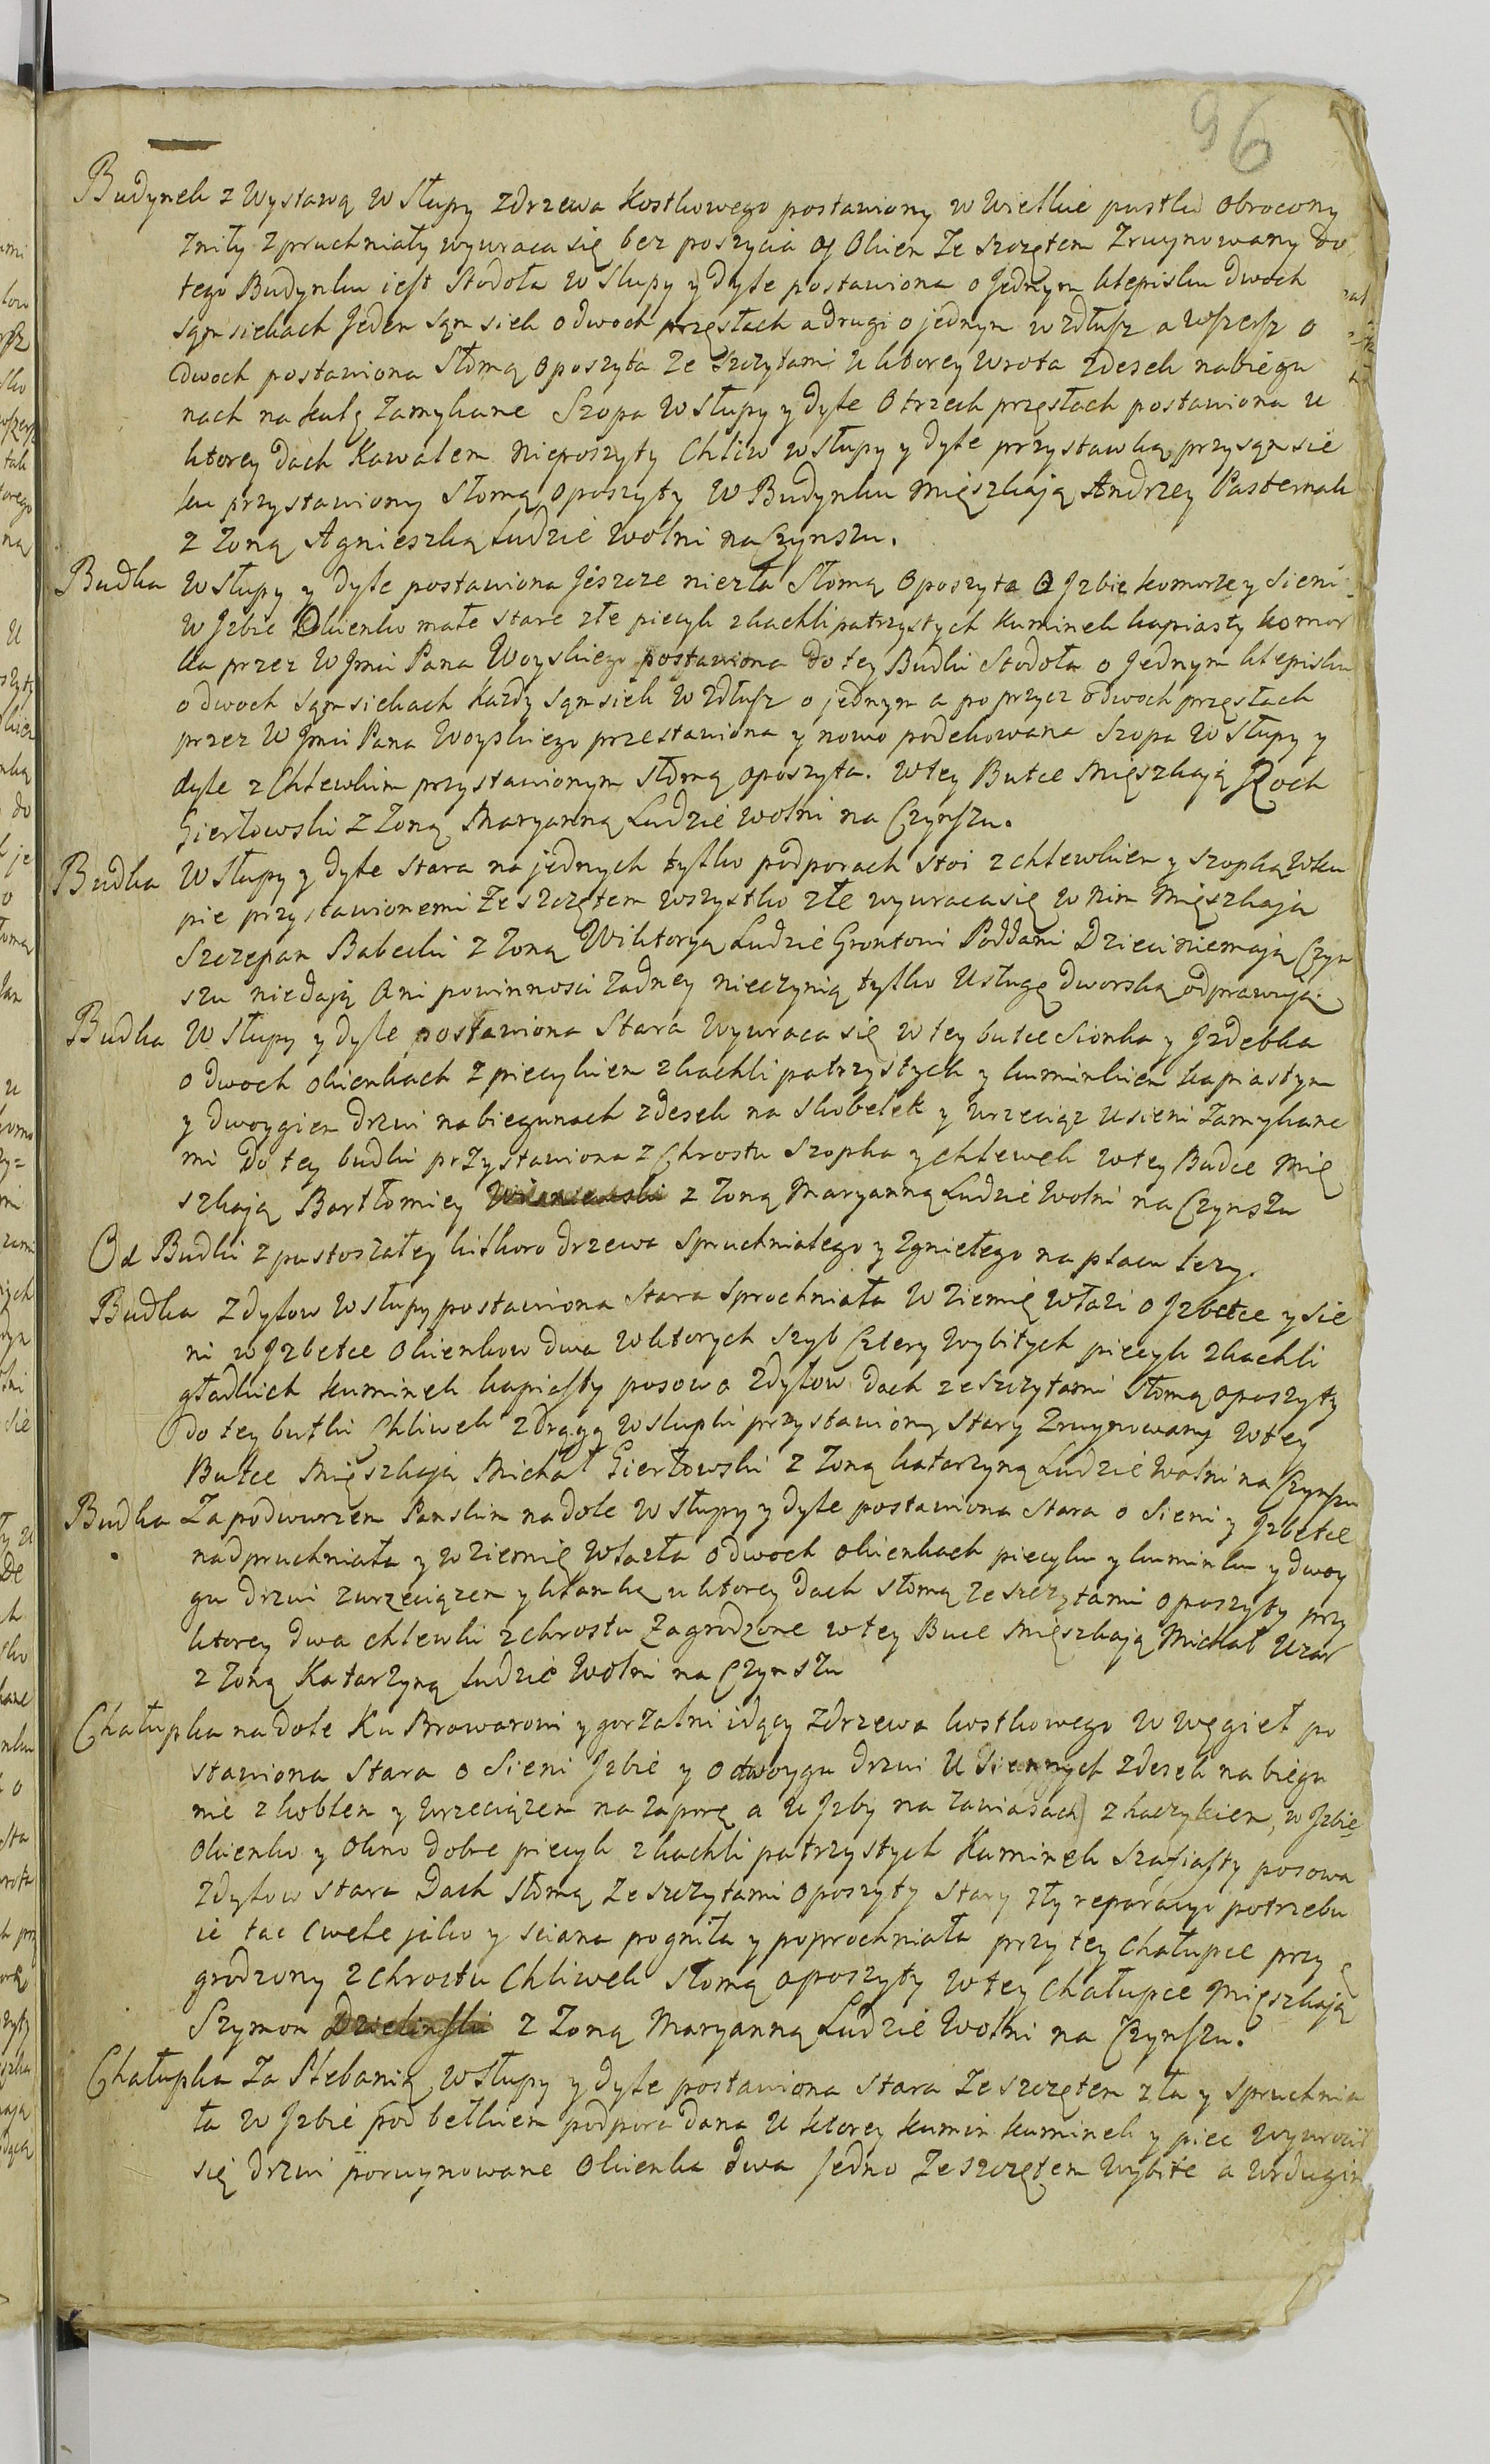 96
Budynek z Wystawą w Słupy z drzewa kostkowego postawiony w wielkie pustki obrocony
zniły zpruchniały wywraca się bez poszycia y Okien ze szczętem zruynowany do
tego Budynku iest Stodoła w Słupy y dyle postawiona o Jednym klepisku dwoch
sąmsiekach Jeden sąmsiek o dwoch przęsłach a drugi o jednym wzdłusz a wszersz o
dwoch postawiona słomą oposzyta ze szczytami u ktorey wrota zdesek nabiegu
nach na kulę zamykane Szopa w słupy y dyle o trzech przęsłach postawiona u
ktorey dach kawałem nieposzyty Chliw w słupy y dyle przystawką przy sąmsie
ku przystawiony słomą oposzyty w Budynku mięszkają Andrzey Pasternak
z Zoną Agnieszką Ludzie wolni na Czynszu.
Budka w Słupy y dyle postawiona Jeszcze niezła słomą oposzyta o Jzbie komorze y sieni
w Jzbie Okienko małe stare złe piecyk zkachli patrzystych kuminek kapiasty komor
ka przez WJmci Pana Woyskiego postawiona do tey Budki stodoła o Jednym klepisku
o dwoch sąmsiekach każdy sąmsiek wzdłusz o jednym a po przycz o dwoch przęsłach
przez WJmci Pana Woyskiego przestawiona y nowo podekowana szopa w słupy y
dyle z Chlewkim przystawionym słomą oposzyta. w tey Butce mięszkają Roch
Gierłowski z Zoną Maryanną Ludzie wolni na Czynszu.
Budka w Słupy y dyle stara na jednych tylko podporach stoi z chlewkiem y szopką wku
pie przystawionemi ze szczętem wszystko złe wywraca się w nim mięszkaja
Szczepan Babecki z Zoną Wiktoryą Ludzie Grontowi Poddani Dzieci niemają Czyn
szu niedają Ani powinnosci zadney nieczynią tylko usługę dworską odprawują
Budka w Słupy y dyle postawiona Stara wywraca się w tey butce sionka y Jzdebka
o dwoch okienkach z piecykiem zkachli patrzystych y kuminkiem kapiastym
y dwoygiem drzwi nabiegunach zdesek na skobelek y wrzeciąz u sieni zamykane
mi do tey budki przystawiona z Chrostu szopka y chlewek w tey Budce mię
szkają Bartłomiey z Zoną Maryanną Ludzie wolni na Czynszu
Od Budki z pustoszałey kilkoro drzewa spruchniałego y zgniełego na placu lezy.
Budka z dylow w słupy postawiona stara sprochniała w ziemię włazi o Jzbetce y sie
ni w Jzbetce Okienkow dwa w ktorych szyb Cztery wybitych piecyk zkachli
gładkich kuminek kapiasty posowa z dylow dach ze szczytami słomą oposzyty
do tey butki Chliwek z drągą w słupki przystawiony stary zruynowany w tey
Butce mięszkają Michał Gierłowski z Zoną katarzyną Ludzie wolni na Czynszu
Budka Za podwurzem Panskim na dole w słupy y dyle postawiona stara o sieni y Jzbetce
nadpruchniała y w ziemię wlazła o dwoch okienkach piecyku y kuminku y dwoy
gu drzwi z wrzeciązem y klamką u ktorey dach słomą ze szczytami oposzyty przy
ktorey dwa chlewki z chrostu zagrodzone w tey Buce mięszkają Michał Uzar
z Zoną Katarzyną Ludzie wolni na Czynszu
Chałupka na dole Ku Browarowi y gorzalni idący z drzewa kostkowego w węgieł po
stawiona stara o Sieni Jzbie y o dwoygu drzwi u siennych zdesek na biegu
nie z koblem y wrzeciązem na zaporę a u Jzby na zawiasach z haczykiem, w Jzbie
Okienko y Okno dobre piecyk zkachli patrzystych kuminek szafiasty posowa
z dylow stara Dach słomą ze szczytami oposzyty stary zły reparacyi potrzebu
ie tac cwele jako y sciana pogniła y poprochniała przy tey chałupce przy
grodzony z chrostu Chliwek słomą oposzyty w tey chałupce mięszkają
Szymon Dzielinski z Zoną Maryanną Ludzie wolni na Czynszu.
Chałupka Za Plebanią w słupy y dyle postawiona stara ze szczętem zła y spruchnia
ła w Jzbie pod belkiem podpora dana u ktorey kumin kuminek y piec wywrocił
się drzwi poruynowane Okienka dwa Jedno ze szczętem wybite a w drugim